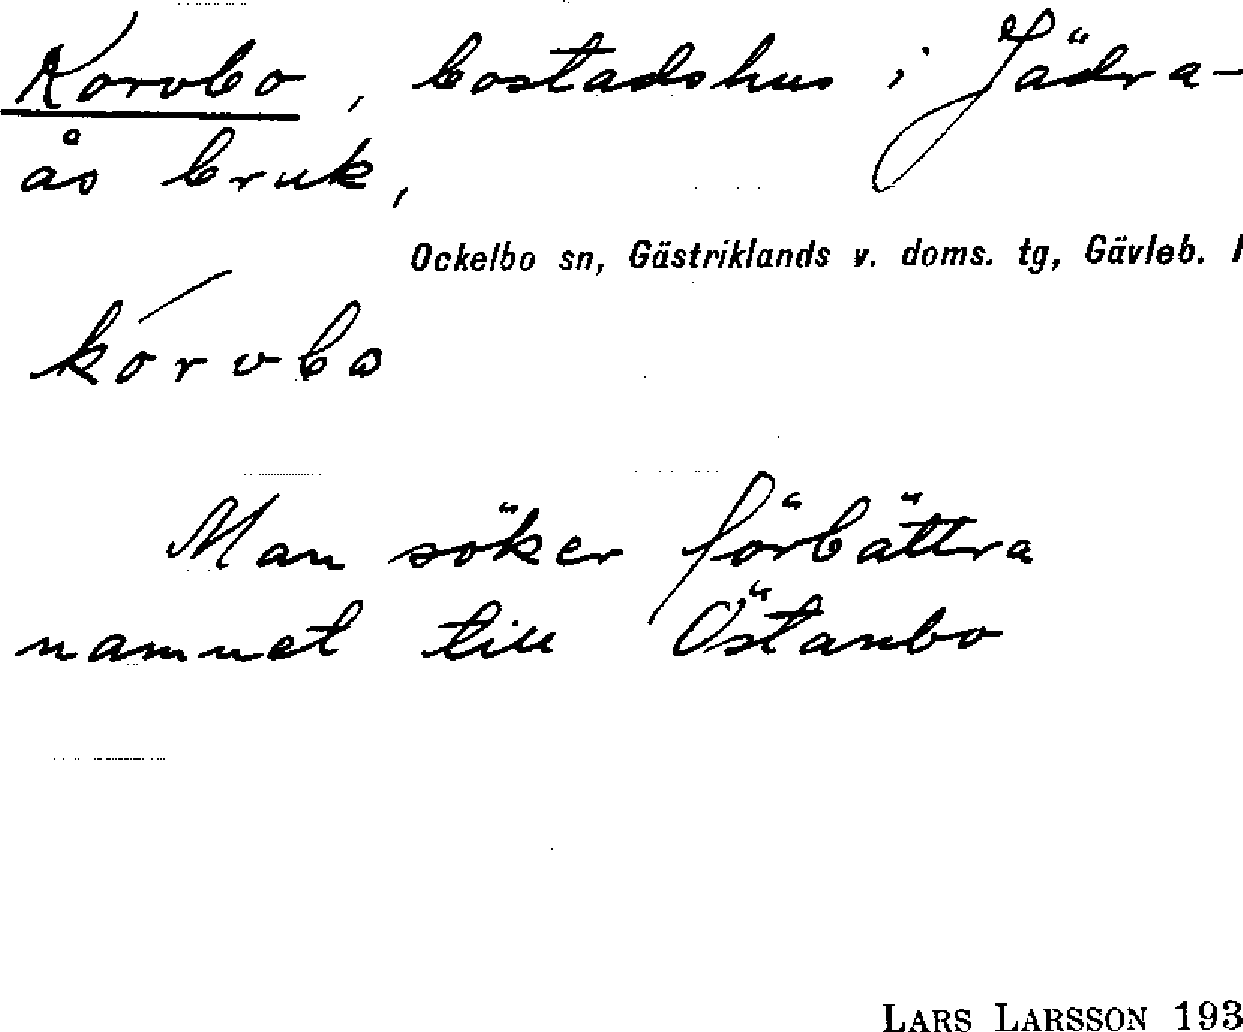 Korvbo, bostadshus i Jädra-
ås bruk,
Ockelbo sn, Gästriklands v. doms. tg, Gävleb. l
kórvbo
Man söker förbättra
namnet till Östanbo
LARS LARSSON 193